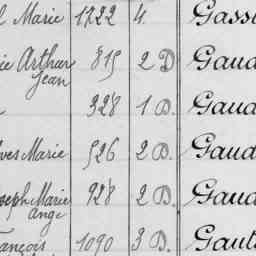 Marie 1722 4. Gass
ie Arthur 815 2 D Gaud
Jean
328 1 D. Gaud
ves Marie 526 2 D. Gaud
seph Marie 928 2 D. Gaud
ange
rançois 1090 3 D. Gaut